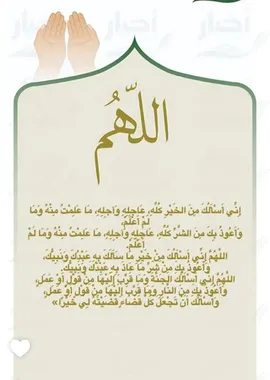 أخبار
أخبار
اللّهُم
إنِّي أسْألُكَ مِنَ الخَيْرِ كُلِّهِ، عَاجِلِهِ وَآجِلِهِ، مَا عَلِمْتُ مِنْهُ وَمَا
لَمْ أعْلَمْ،
وَأعُوذُ بِكَ مِنَ الشَّرِّ كُلِّهِ، عَاجِلِهِ وَآجِلِهِ، مَا عَلِمْتُ مِنْهُ وَمَا لَمْ
أعْلَمْ.
اللَّهُمَّ إنِّي أسْألُكَ مِنْ خَيْرِ مَا سَألَكَ بِهِ عَبْدُكَ وَنَبِيُّكَ،
وَأعُوذُ بِكَ مِنْ شَرِّ مَا عَاذَ بِهِ عَبْدُكَ وَنَبِيُّكَ.
اللَّهُمَّ إنِّي أسْألُكَ الْجَنَّةَ وَمَا قَرَّبَ إلَيْهَا مِنْ قَوْلٍ أوْ عَمَلٍ،
وَأعُوذُ بِكَ مِنَ النَّارِ وَمَا قَرَّبَ إلَيْهَا مِنْ قَوْلٍ أوْ عَمَلٍ،
وَأسْألُكَ أنْ تَجْعَلَ كُلَّ قَضَاءٍ قَضَيْتَهُ لِي خَيْرًا»